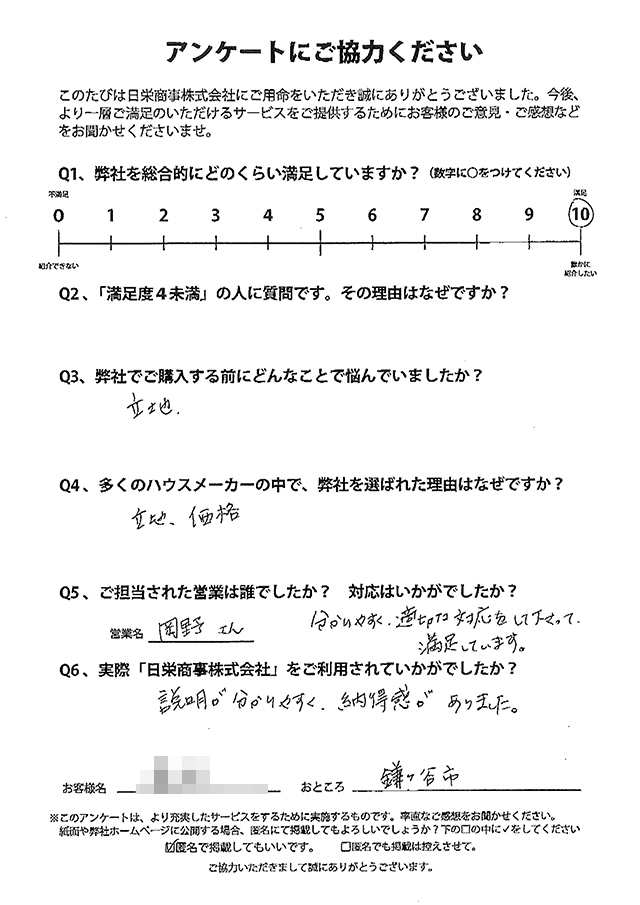 アンケートにご協力ください
このたびは日栄商事株式会社にご用命をいただき誠にありがとうございました。今後、
より一層ご満足のいただけるサービスをご提供するためにお客様のご意見・ご感想など
をお聞かせくださいませ。
Q1、弊社を総合的にどのくらい満足していますか？（数字に○をつけてください）
不満足 満足
0 1 2 3 4 5 6 7 8 9 10
紹介できない 誰かに
紹介したい
Q2、「満足度４未満」の人に質問です。その理由はなぜですか？
Q3、弊社でご購入する前にどんなことで悩んでいましたか？
立地.
Q4、多くのハウスメーカーの中で、弊社を選ばれた理由はなぜですか？
立地、価格
Q5、ご担当された営業は誰でしたか？ 対応はいかがでしたか？
営業名 岡野さん 分かりやすく、適切な対応をして下さって、
満足しています。
Q6、実際「日栄商事株式会社」をご利用されていかがでしたか？
説明が分かりやすく、納得感がありました。
お客様名 おところ 鎌ヶ谷市
※このアンケートは、より充実したサービスをするために実施するものです。率直なご感想をお聞かせください。
紙面や弊社ホームページに公開する場合、匿名にて掲載してもよろしいでしょうか？下の□の中に✓をしてください
☑匿名で掲載してもいいです。 □匿名でも掲載は控えさせて。
ご協力いただきまして誠にありがとうございます。